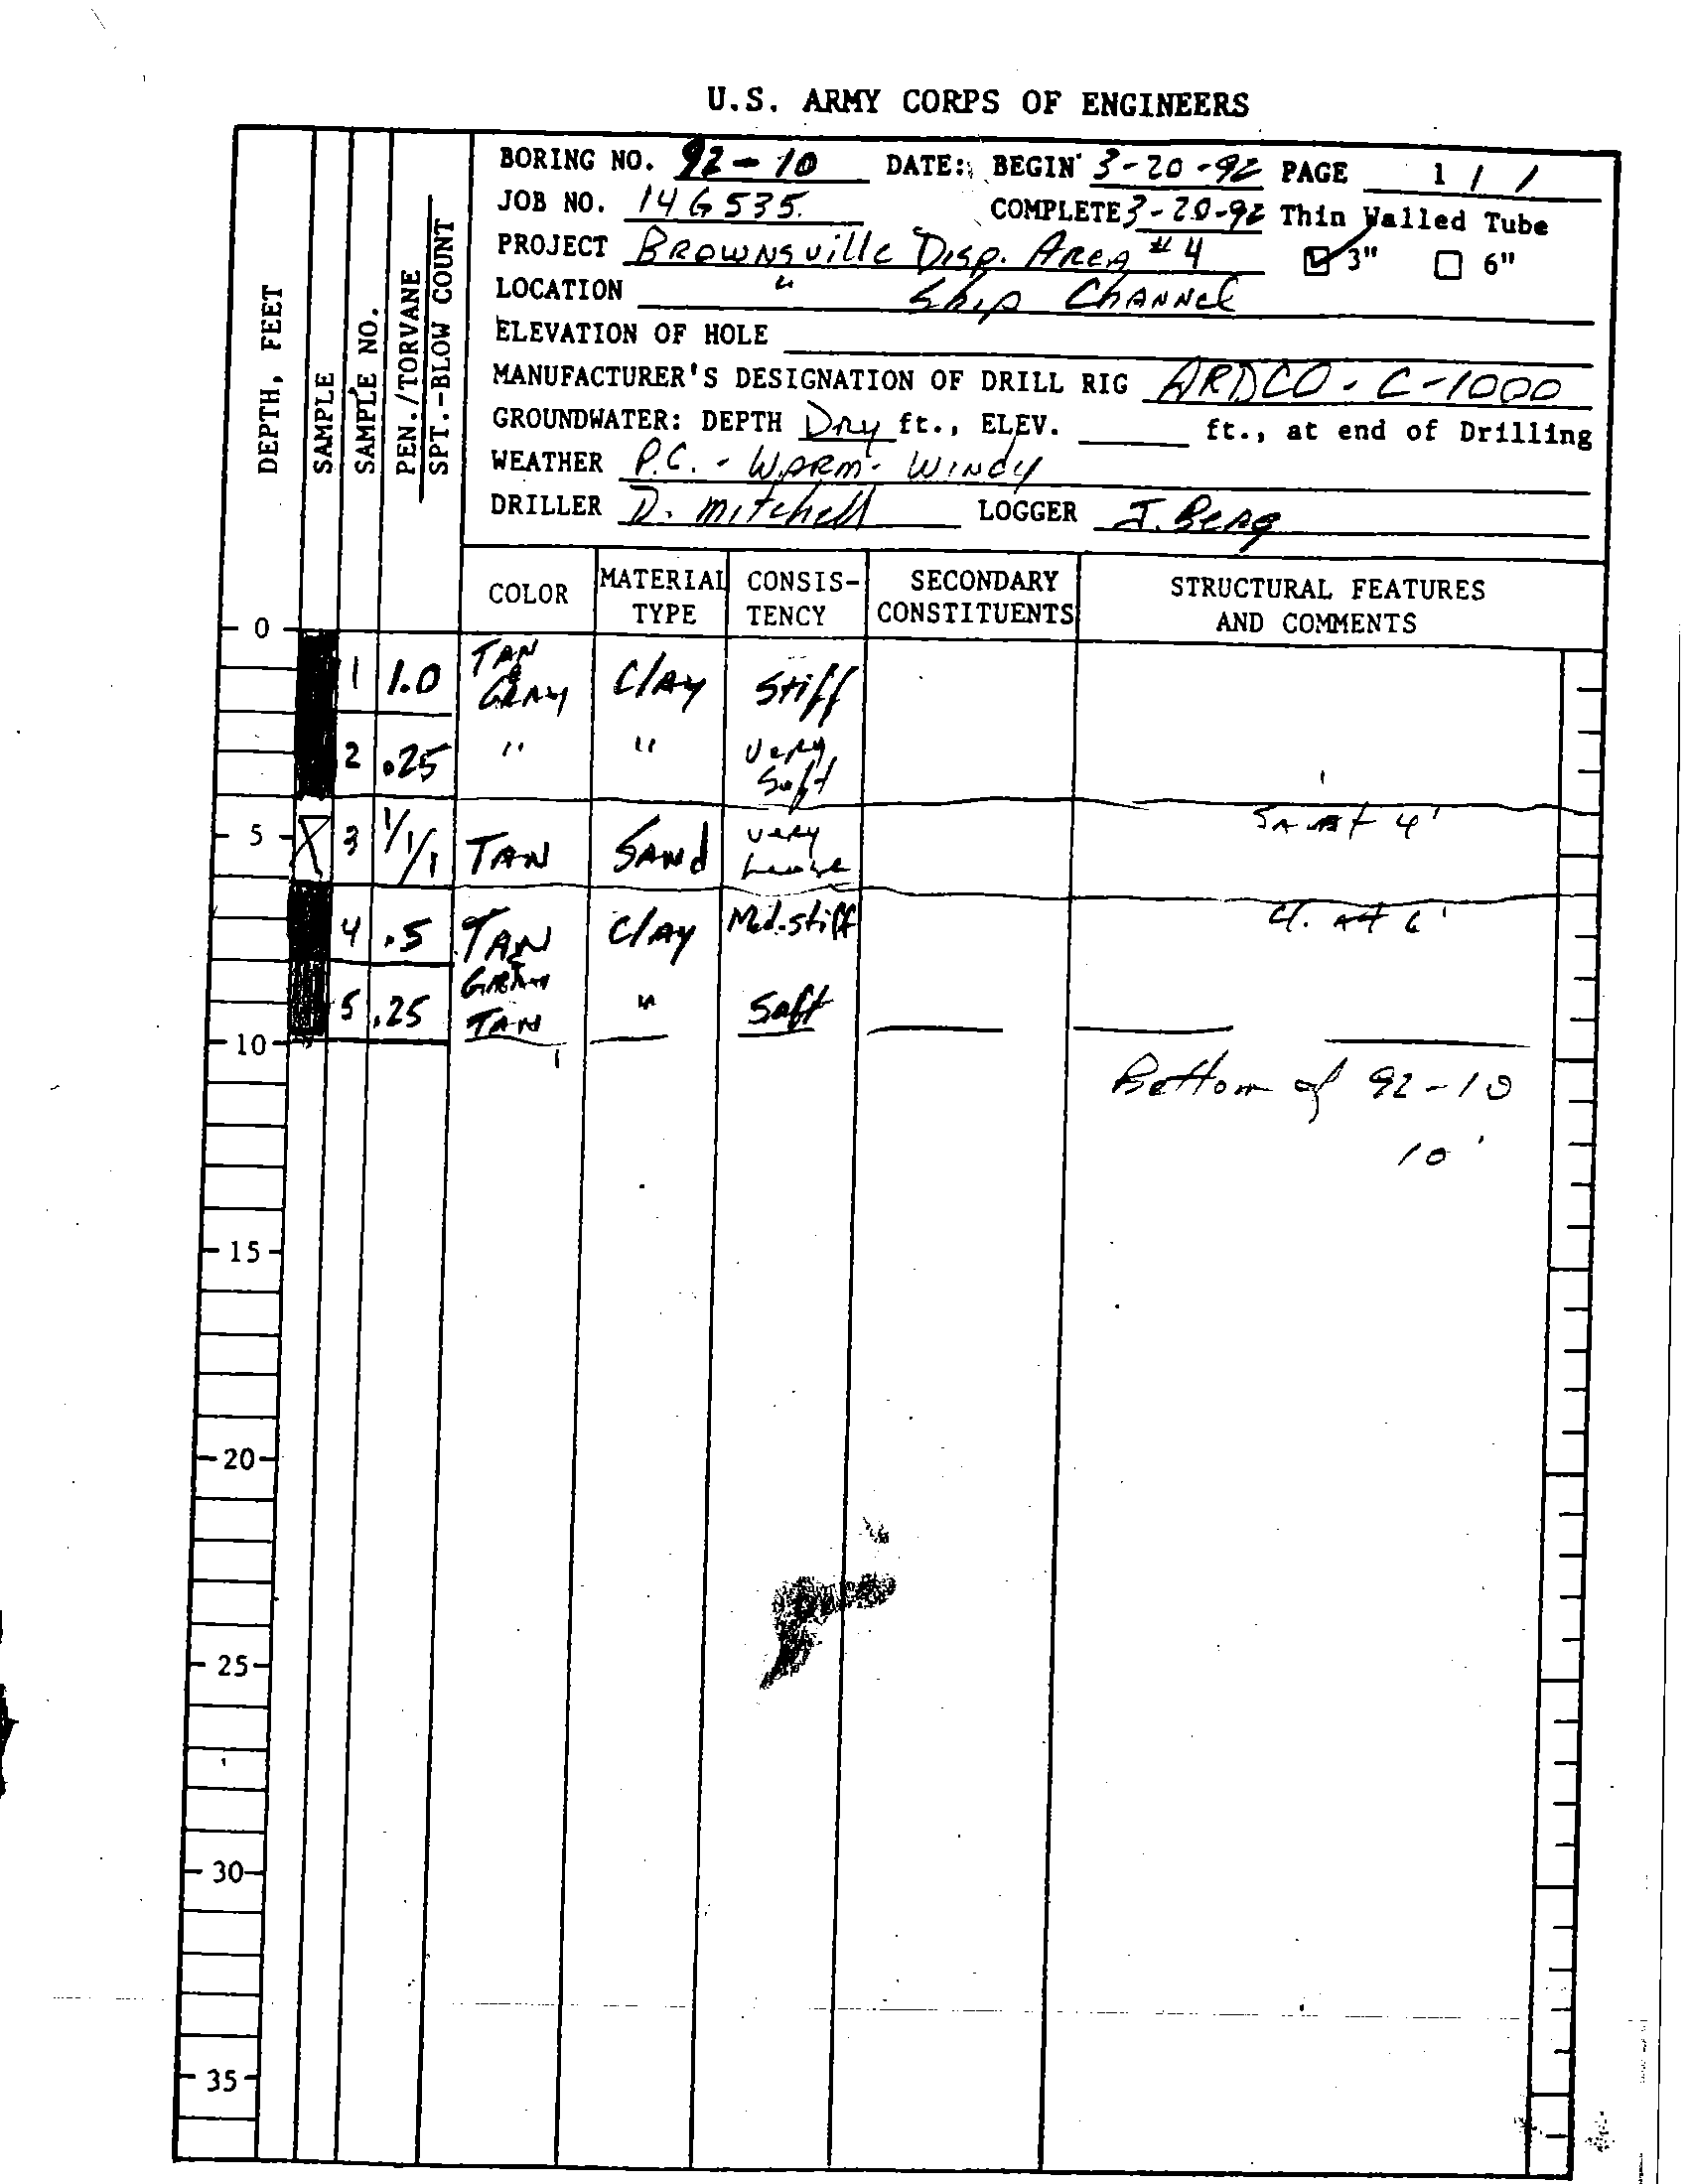 U.S. ARMY CORPS OF ENGINEERS
BORING NO. 92-10 DATE: BEGIN 3-20-92 PAGE 1 / 1
JOB NO. 14G535. COMPLETE 3-20-92 Thin Walled Tube
PROJECT BROWNSville Disp. AreA #4 3" 6"
LOCATION " Ship ChANNel
ELEVATION OF HOLE
MANUFACTURER'S DESIGNATION OF DRILL RIG ARDCO - C-1000
GROUNDWATER: DEPTH Dry ft., ELEV. ft., at end of Drilling
WEATHER P.C. - WARM - WINdy
DRILLER D. mitchell LOGGER J. Berg
DEPTH, FEET
SAMPLE
SAMPLE NO.
PEN./TORVANE
SPT.-BLOW COUNT
COLOR MATERIAL TYPE CONSIS-TENCY SECONDARY CONSTITUENTS STRUCTURAL FEATURES AND COMMENTS
0
1 1.0 TAN & GRAY ClAy Stiff
2 .25 " " very Soft
SA at 4'
5 3 1/1/1 TAN SANd very Loose
Cl. at 6'
4 .5 TAN & GRAY ClAy Med. stiff
5 .25 TAN " Soft
10
Bottom of 92-10
10'
15
20
25
30
35